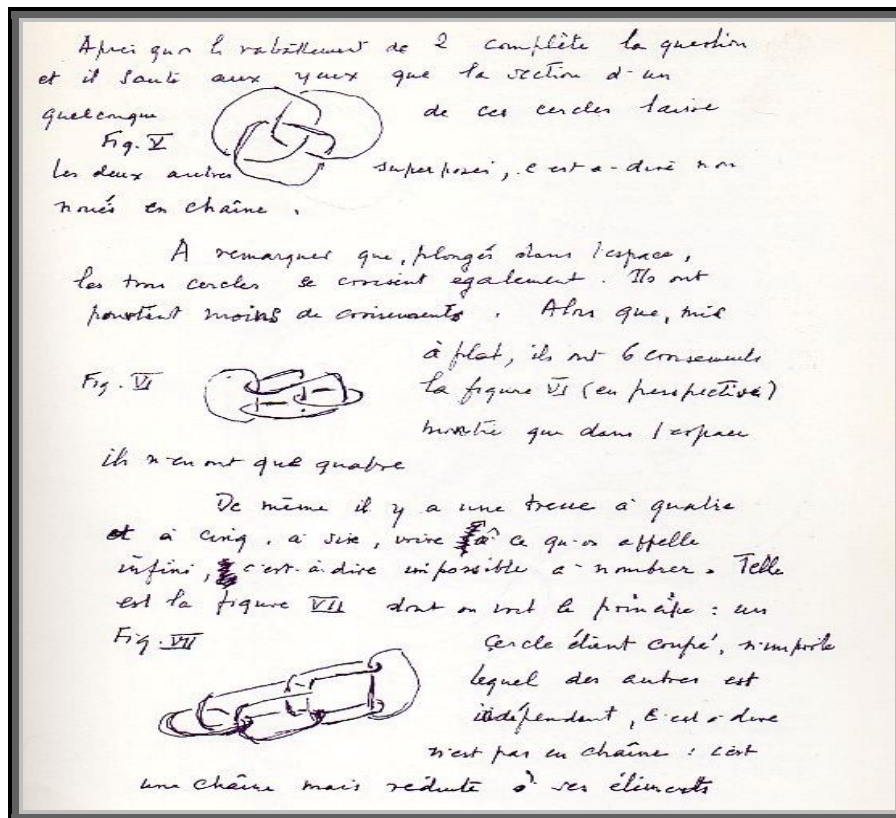 Après quoi le rabattement de 2 complète la question
et il saute aux yeux que la section d'un
quelconque de ces cercles laisse
Fig. V
les deux autres superposés, c'est-à-dire non
noués en chaîne.
A remarquer que, plongés dans l'espace,
les trois cercles se croisent également. Ils ont
pourtant moins de croisements. Alors que, mis
à plat, ils ont 6 croisements
Fig. VI la figure VI (en perspective)
montre que dans l'espace
ils n'en ont que quatre
De même il y a une tresse à quatre
et à cinq, à six, voire à ce qu'on appelle
infini, c'est-à-dire impossible à nombrer. Telle
est la figure VII dont on voit le principe : un
Fig. VII cercle étant coupé, n'importe
lequel des autres est
indépendant, c'est-à-dire
n'est pas en chaîne : c'est
une chaîne mais réduite à ses éléments